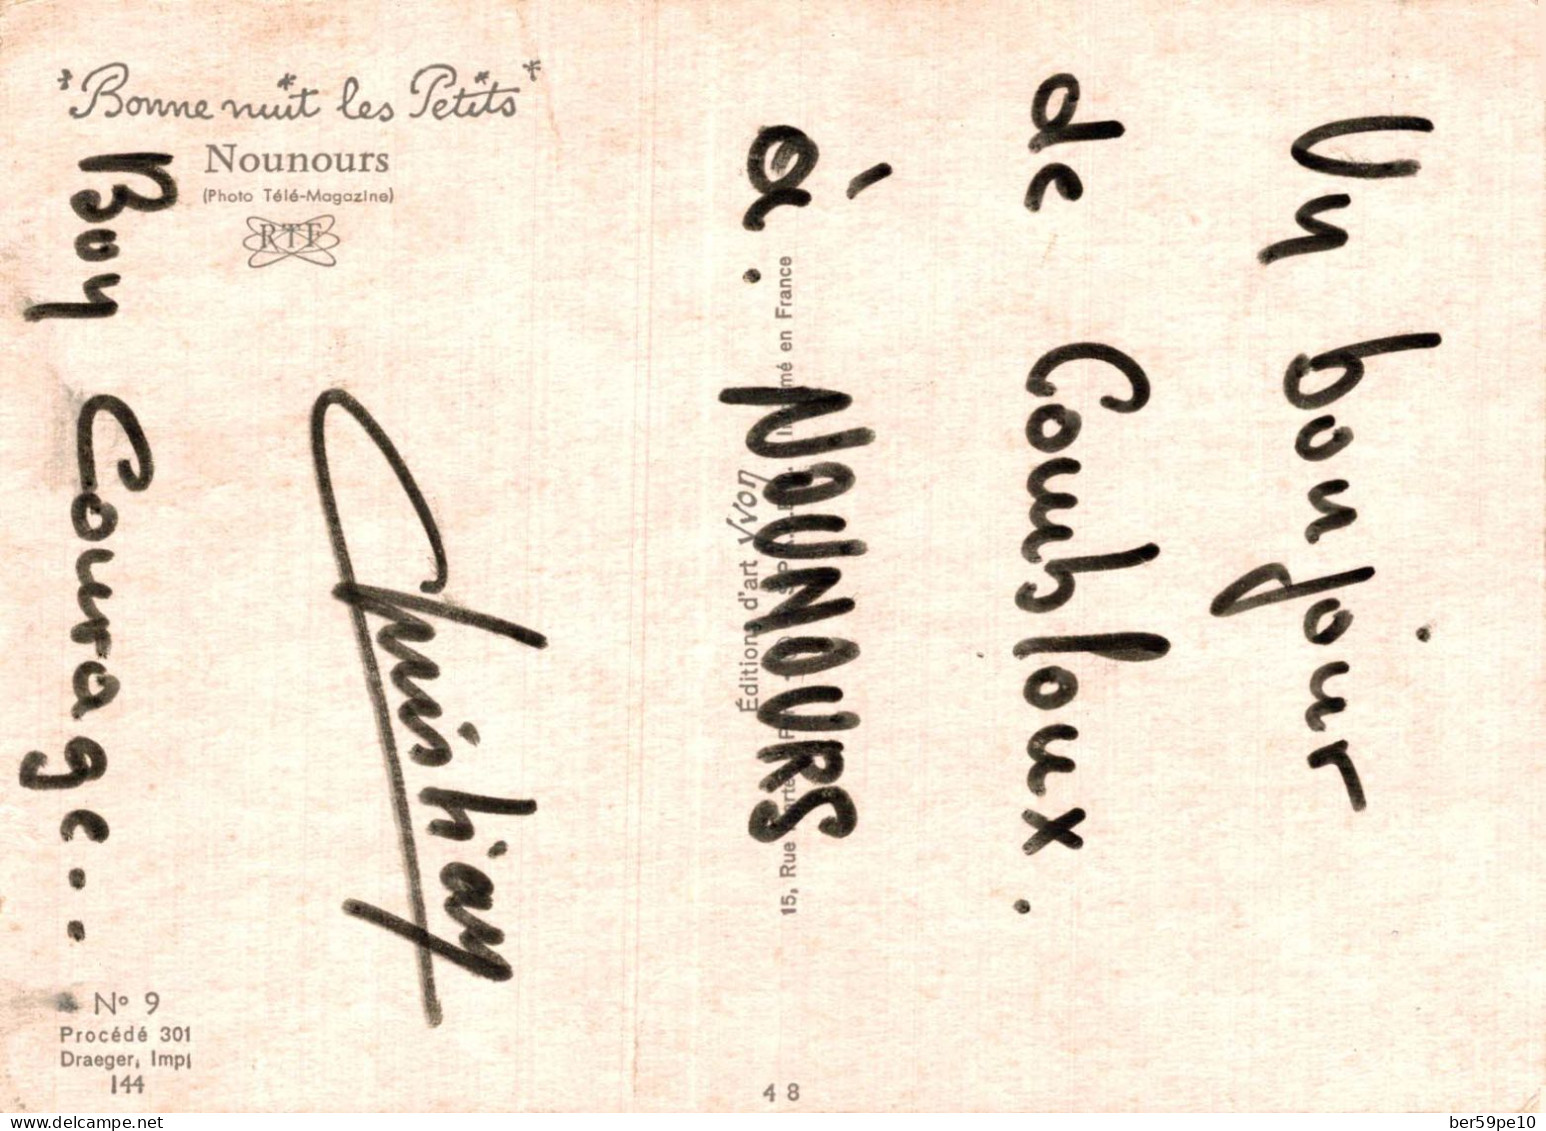 "Bonne nuit les Petits"
Nounours
(Photo Télé-Magazine)
RTF
Un bonjour
de Combloux.
à. NOUNOURS
Christian
Bon Courage...
Éditions d'art Yvon
15, Rue
en France
N° 9
Procédé 301
Draeger, Imp
144
48
delcampe.net
ber59pe10